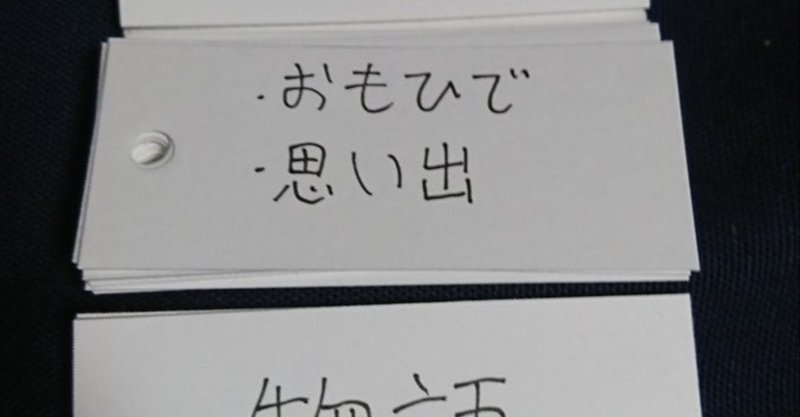 ・おもひで
・思い出
物語